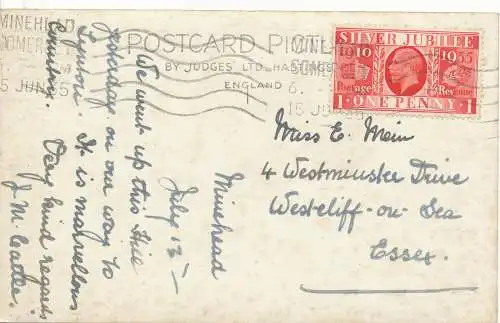 MINEHEAD
SOMERSET
15 JUN 35
POSTCARD
BY JUDGES' LTD., HASTINGS
ENGLAND
MINEHEAD
SOMERSET
6.
15 JUN 35
SILVER JUBILEE
1910 1935
Postage Revenue
1 ONE PENNY 1
Miss E. Mein
4 Westminster Drive
Westcliff-on-Sea
Essex.
Minehead
July 13th
We went up this Hill
yesterday on our way to
It is marvellous
Very kind regards
J. M.